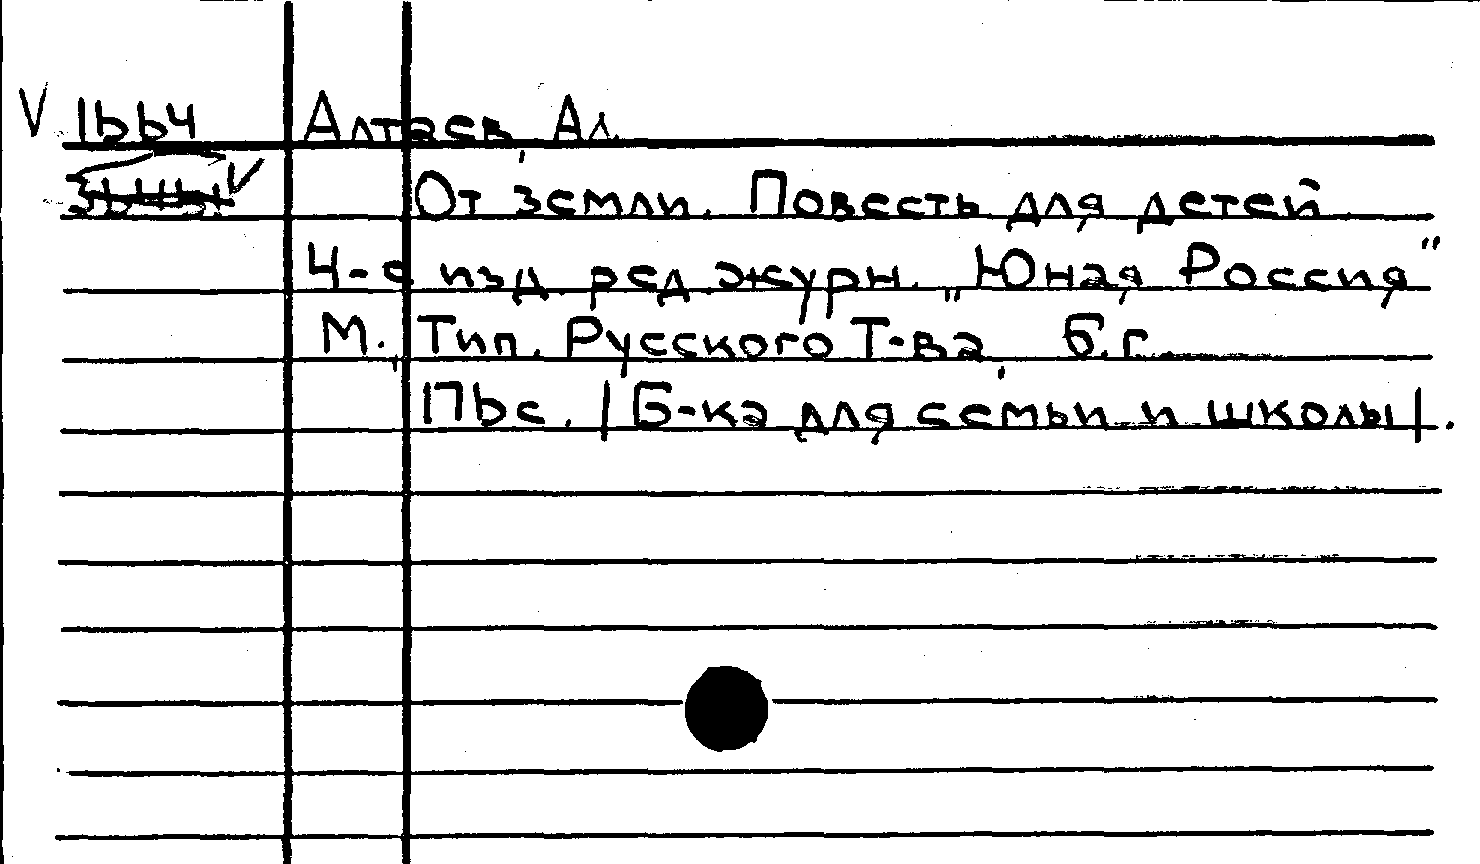 V 1664 Алтаев, Ал.
От земли. Повесть для детей
4-е изд. ред. журн. „Юная Россия"
М., Тип. Русского Т-ва, б.г.
176с. | Б-ка для семьи и школы |.